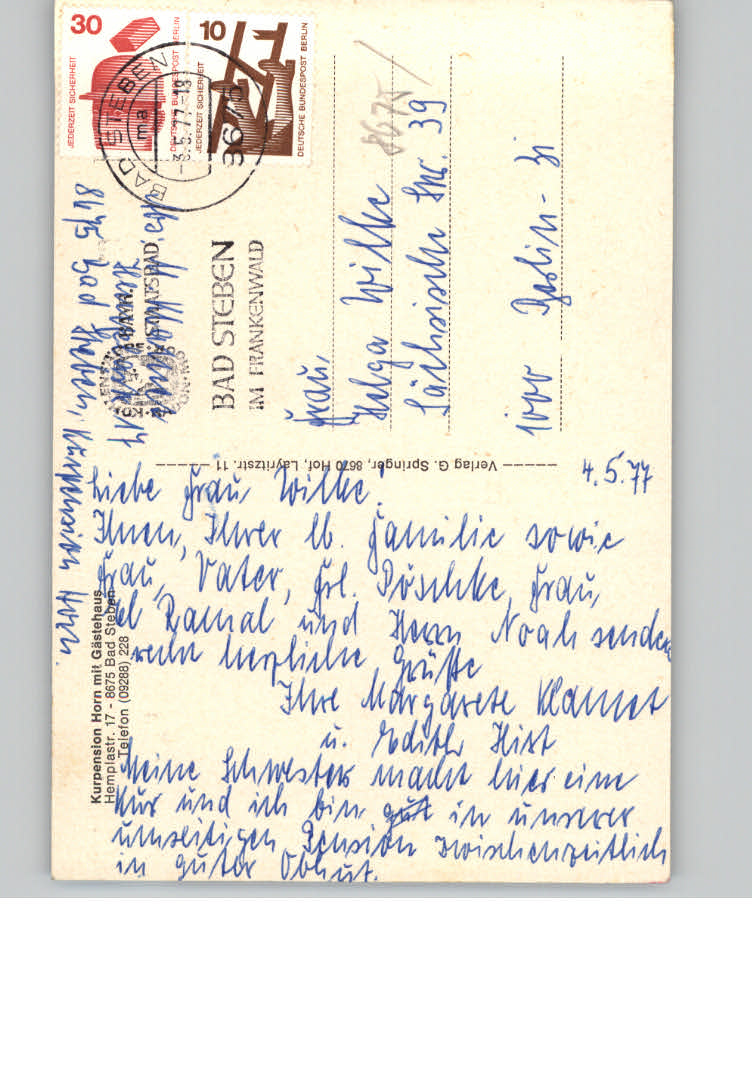 30
JEDERZEIT SICHERHEIT
DEUTSCHE BUNDESPOST BERLIN
10
JEDERZEIT SICHERHEIT
DEUTSCHE BUNDESPOST BERLIN
BAD STEBEN
ma
-3.5.77-18
8675
BAYR.
STAATSBAD
BAD STEBEN
IM FRANKENWALD
8675 Bad Steben, Kurpension Horn.
8675
Frau
Helga Wilke
Sächsische Str. 39
1000 Berlin-31
Verlag G. Springer, 8670 Hof, Layritzstr. 11
4.5.77
Liebe Frau Wilke!
Ihnen, Ihrer lb. Familie sowie
Frau Vater, Frl. Pöschke, Frau
el Ramal und Herrn Noah senden
recht herzliche Grüße
Ihre Margarete Klamet
u. Edith Hist
Meine Schwester macht hier eine
Kur und ich bin gut in unserer
umseitigen Pension zwischenzeitlich
in guter Obhut.
Kurpension Horn mit Gästehaus
Hemplastr. 17 - 8675 Bad Steben
Telefon (09288) 228